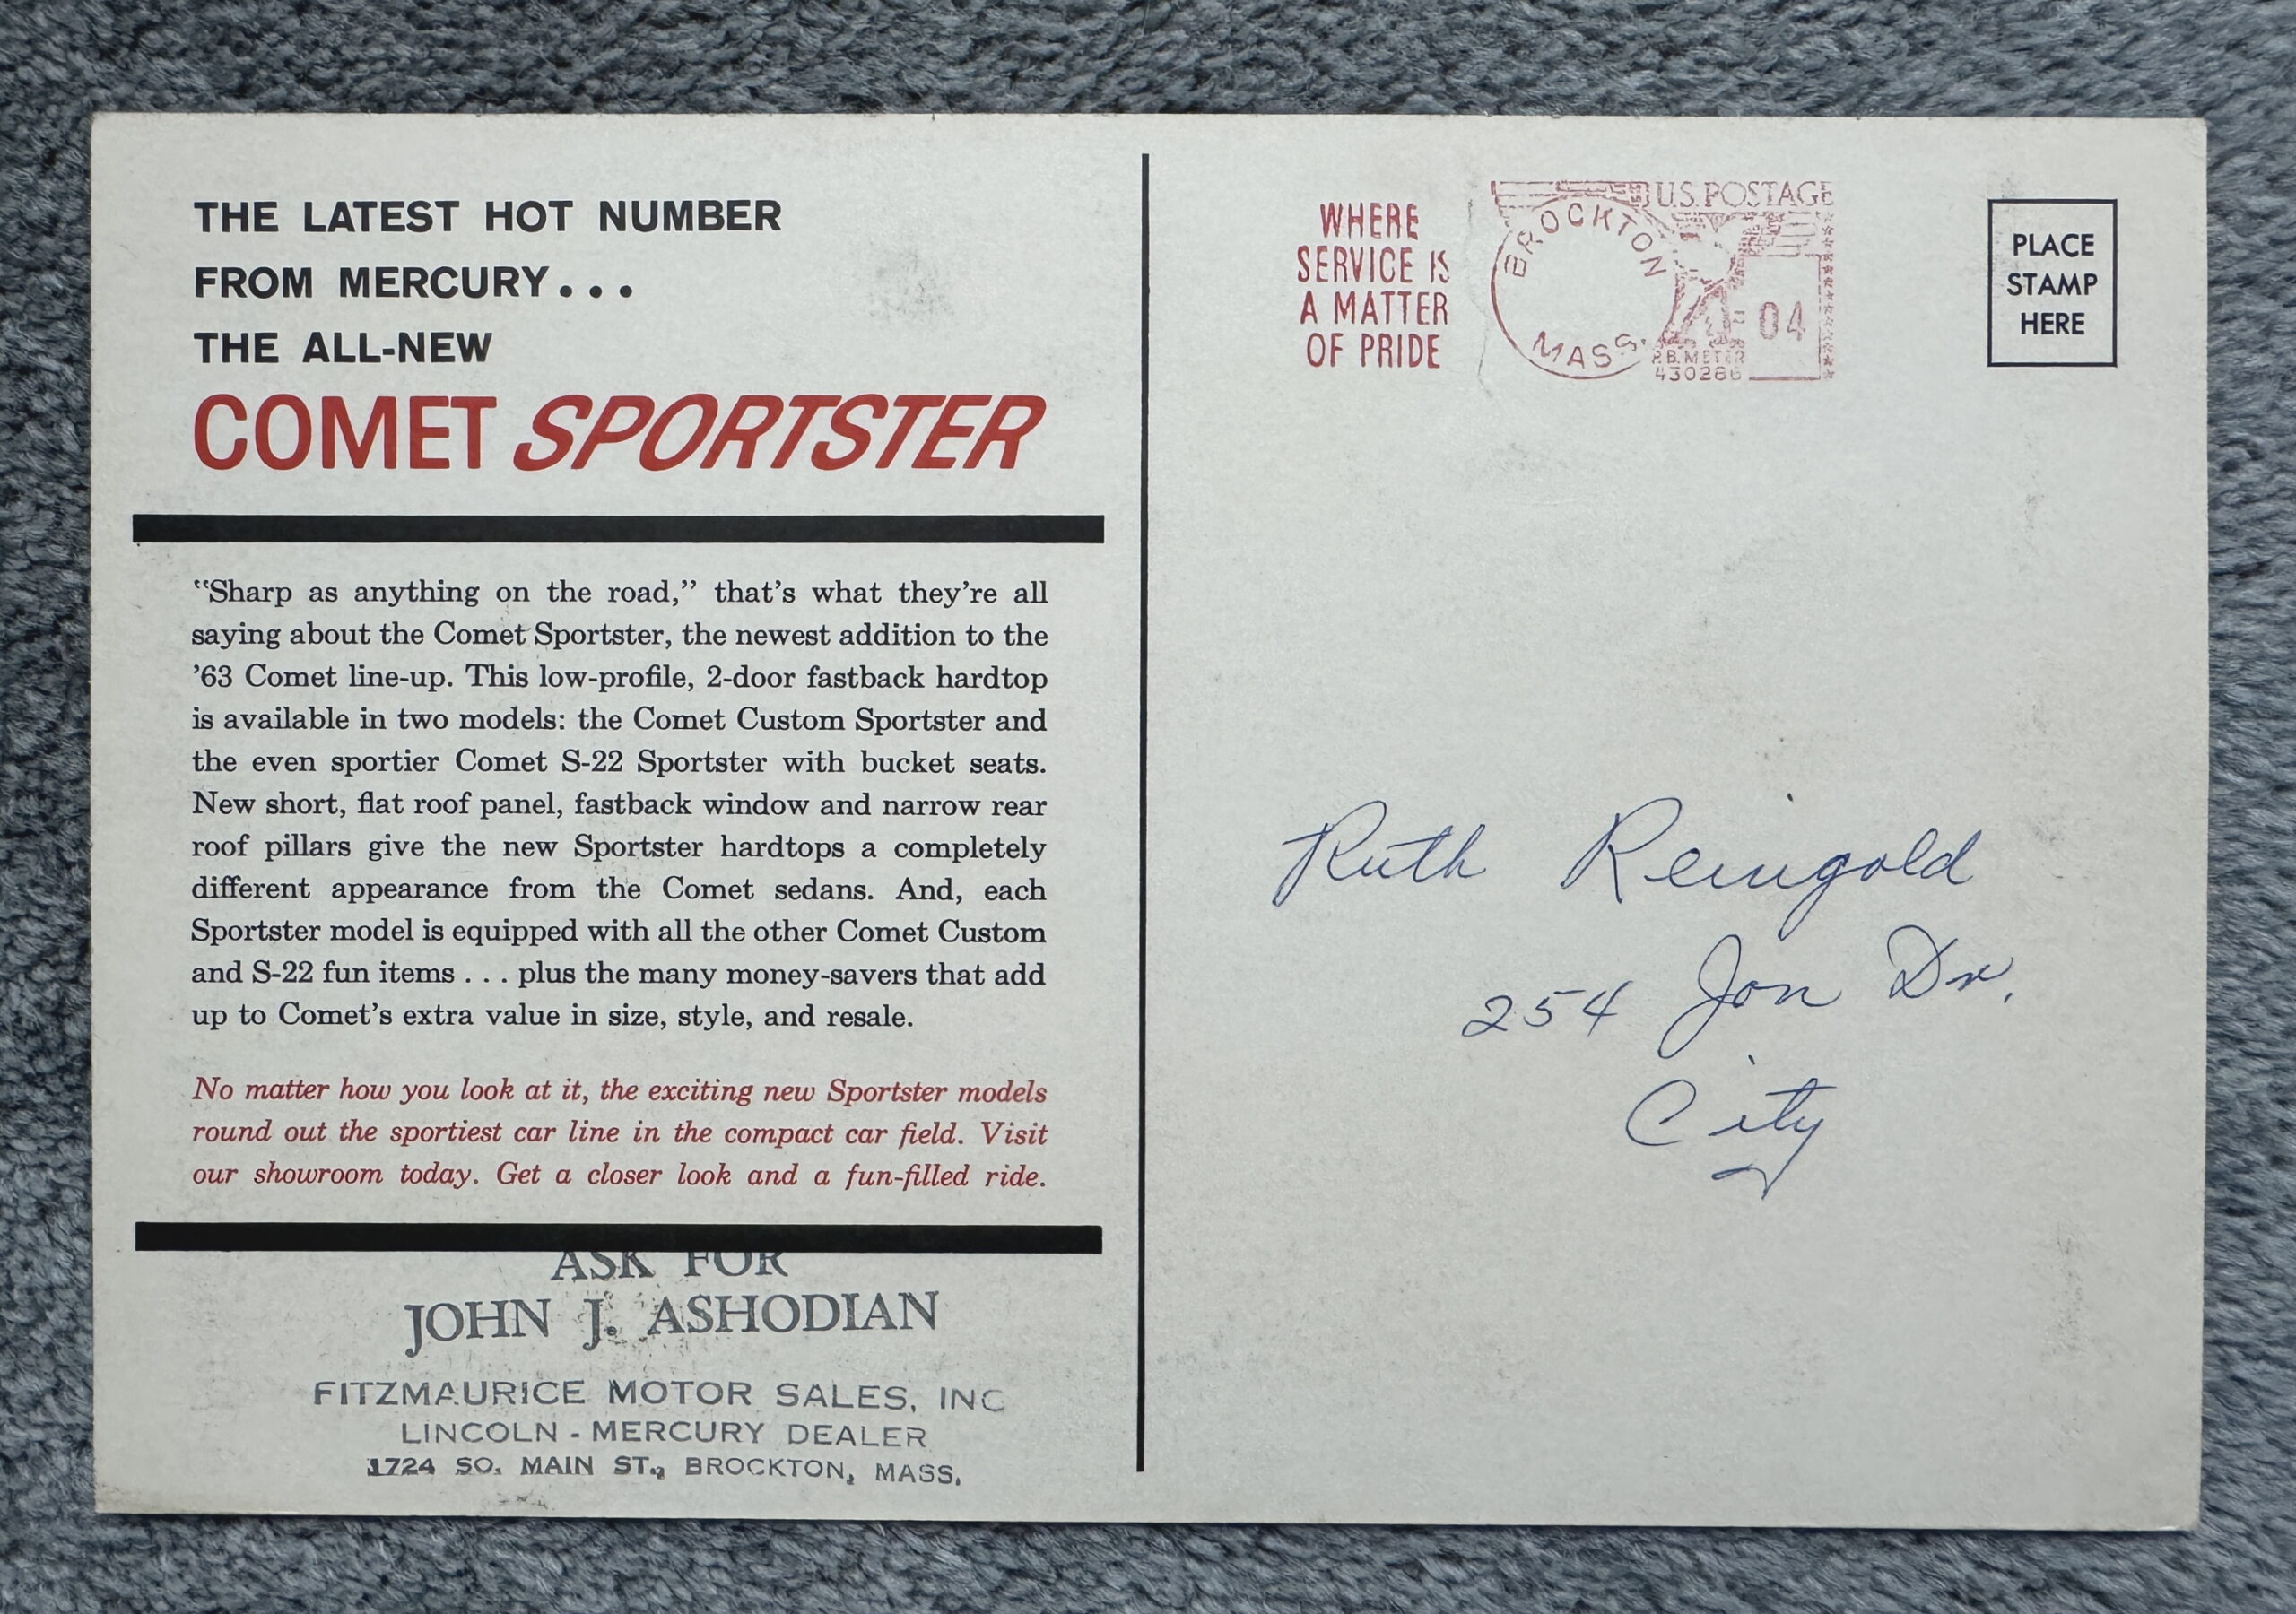 THE LATEST HOT NUMBER
FROM MERCURY...
THE ALL-NEW
COMET SPORTSTER
“Sharp as anything on the road,” that’s what they’re all
saying about the Comet Sportster, the newest addition to the
’63 Comet line-up. This low-profile, 2-door fastback hardtop
is available in two models: the Comet Custom Sportster and
the even sportier Comet S-22 Sportster with bucket seats.
New short, flat roof panel, fastback window and narrow rear
roof pillars give the new Sportster hardtops a completely
different appearance from the Comet sedans. And, each
Sportster model is equipped with all the other Comet Custom
and S-22 fun items . . . plus the many money-savers that add
up to Comet’s extra value in size, style, and resale.
No matter how you look at it, the exciting new Sportster models
round out the sportiest car line in the compact car field. Visit
our showroom today. Get a closer look and a fun-filled ride.
ASK FOR
JOHN J. ASHODIAN
FITZMAURICE MOTOR SALES, INC
LINCOLN - MERCURY DEALER
1724 SO. MAIN ST., BROCKTON, MASS.
WHERE
SERVICE IS
A MATTER
OF PRIDE
BROCKTON
MASS.
U.S. POSTAGE
04
P.B. METER
430286
PLACE
STAMP
HERE
Ruth Reingold
254 Jon Dr.
City